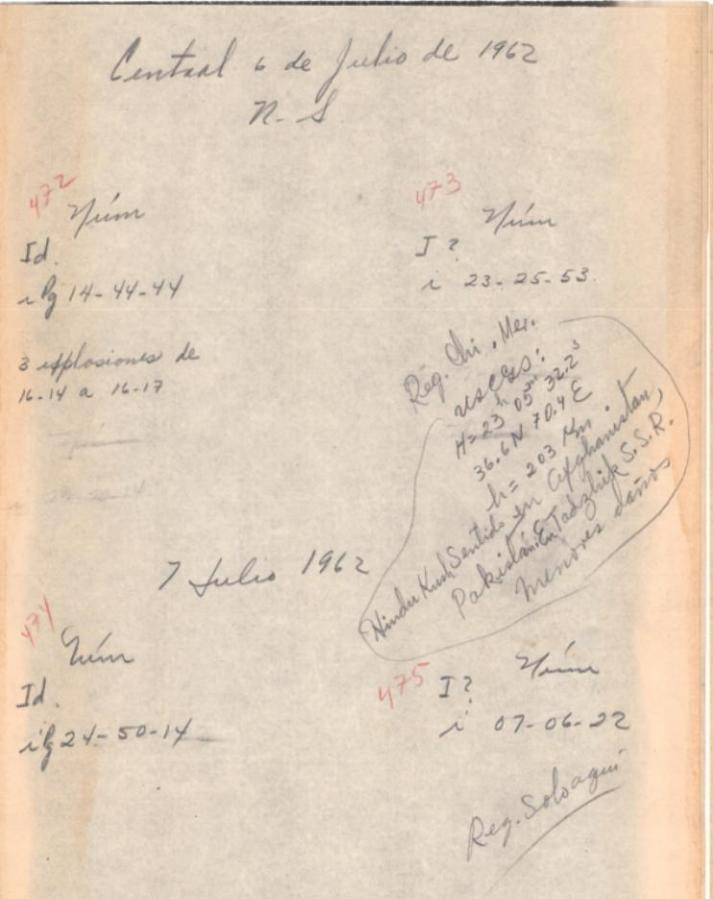 Central 6 de Julio de 1962
N-S
472
Núm
Id.
i Pg 14-44-44
3 explosiones de
16-14 a 16-17
473
Núm
I ?
i 23-25-53.
Reg. Chi. Mex.
USCGS:
H=23h 05m 32.2s
36.6N 70.4E
h= 203 Km.
Hindu Kush Sentido en Afghanistan,
Pakistán. En Tadzhik S.S.R.
menores daños
7 Julio 1962
474
Núm
Id.
i Pg 24-50-14
475
Núm
I?
i 07-06-22
Reg. Solo aquí